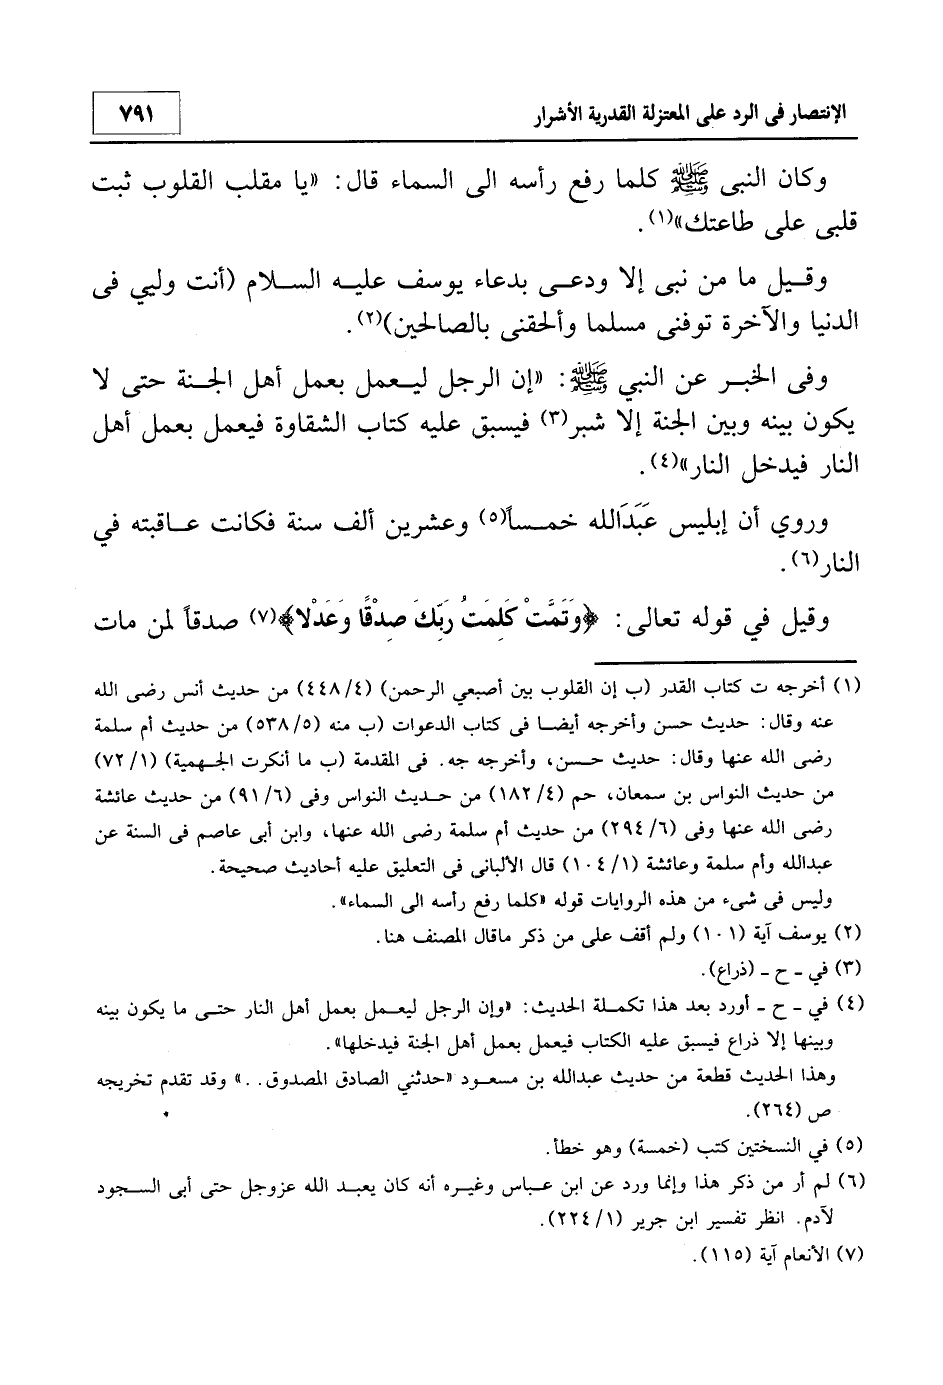 الإنتصار في الرد على المعتزلة القدرية الأشرار
٧٩١
وكان النبى ﷺ كلما رفع رأسه الى السماء قال: «يا مقلب القلوب ثبت
قلبى على طاعتك»(١).
وقيل ما من نبى إلا ودعى بدعاء يوسف عليه السلام (أنت وليي فى
الدنيا والآخرة توفنى مسلما وألحقنى بالصالحين)(٢).
وفى الخبر عن النبي ﷺ: «إن الرجل ليعمل بعمل أهل الجنة حتى لا
يكون بينه وبين الجنة إلا شبر(٣) فيسبق عليه كتاب الشقاوة فيعمل بعمل أهل
النار فيدخل النار»(٤).
وروي أن إبليس عَبَدَالله خمساً(٥) وعشرين ألف سنة فكانت عاقبته في
النار(٦).
وقيل في قوله تعالى: ﴿وَتَمَّتْ كَلِمَتُ رَبِّكَ صِدْقًا وَعَدْلا﴾(٧) صدقاً لمن مات
(١) أخرجه ت كتاب القدر (ب إن القلوب بين أصبعي الرحمن) (٤/٤٤٨) من حديث أنس رضى الله
عنه وقال: حديث حسن وأخرجه أيضا فى كتاب الدعوات (ب منه (٥/٥٣٨) من حديث أم سلمة
رضى الله عنها وقال: حديث حسن، وأخرجه جه. فى المقدمة (ب ما أنكرت الجهمية) (١/٧٢)
من حديث النواس بن سمعان، حم (٤/١٨٢) من حديث النواس وفى (٦/٩١) من حديث عائشة
رضى الله عنها وفى (٦/٢٩٤) من حديث أم سلمة رضى الله عنها، وابن أبى عاصم فى السنة عن
عبدالله وأم سلمة وعائشة (١/١٠٤) قال الألبانى فى التعليق عليه أحاديث صحيحة.
وليس فى شىء من هذه الروايات قوله «كلما رفع رأسه الى السماء».
(٢) يوسف آية (١٠١) ولم أقف على من ذكر ماقال المصنف هنا.
(٣) في - ح - (ذراع).
(٤) في - ح - أورد بعد هذا تكملة الحديث: «وإن الرجل ليعمل بعمل أهل النار حتى ما يكون بينه
وبينها إلا ذراع فيسبق عليه الكتاب فيعمل بعمل أهل الجنة فيدخلها».
وهذا الحديث قطعة من حديث عبدالله بن مسعود «حدثني الصادق المصدوق..» وقد تقدم تخريجه
ص (٢٦٤).
(٥) في النسختين كتب (خمسة) وهو خطأ.
(٦) لم أر من ذكر هذا وإنما ورد عن ابن عباس وغيره أنه كان يعبد الله عزوجل حتى أبى السجود
لآدم. انظر تفسير ابن جرير (١/٢٢٤).
(٧) الأنعام آية (١١٥).